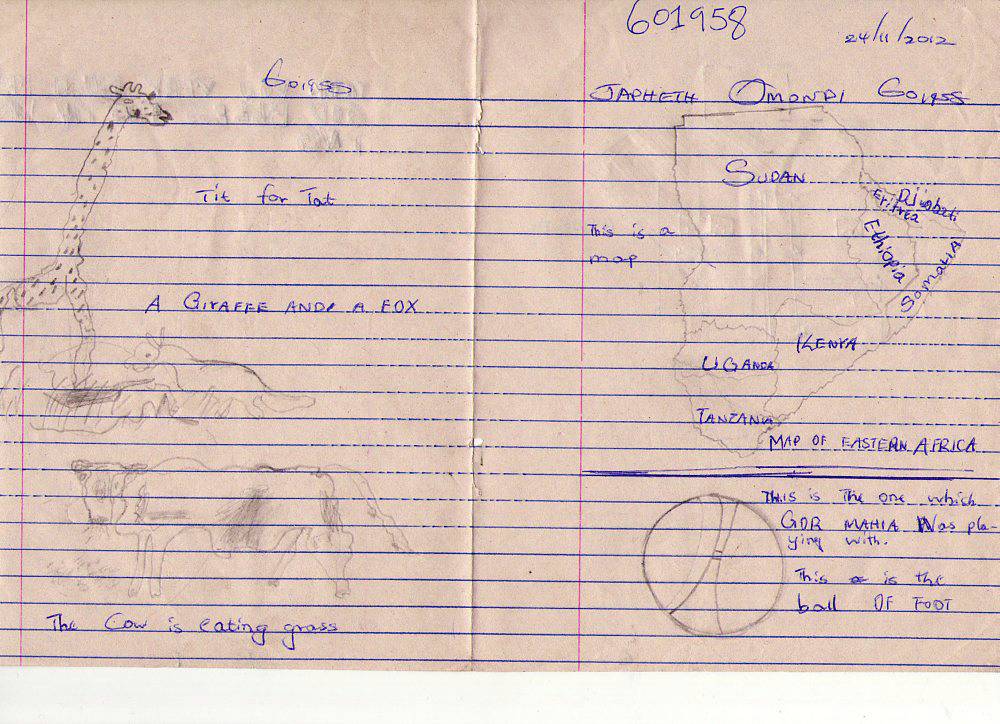 Goigss
Tit for Tat
A GIRAFFE AND A FOX
The Cow is eating grass
601958
24/11/2012
JAPHETH OMONDI Goigss
SUDAN
Eritrea
Djimbati
This is a
map
Ethiopia
Somalia
KENYA
UGANDA
TANZANIA
MAP OF EASTERN AFRICA
This is The one which
GOR MAHIA Was pla-
ying with.
This is the
ball OF FOOT